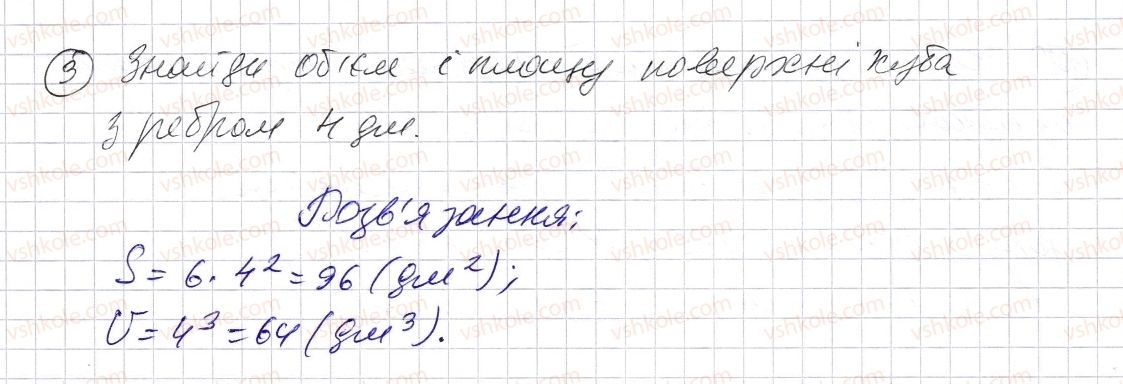 ③ Знайди об'єм і площу поверхні куба
з ребром 4 дм.
Розв'язання:
S = 6 · 4² = 96 (дм²);
V = 4³ = 64 (дм³).